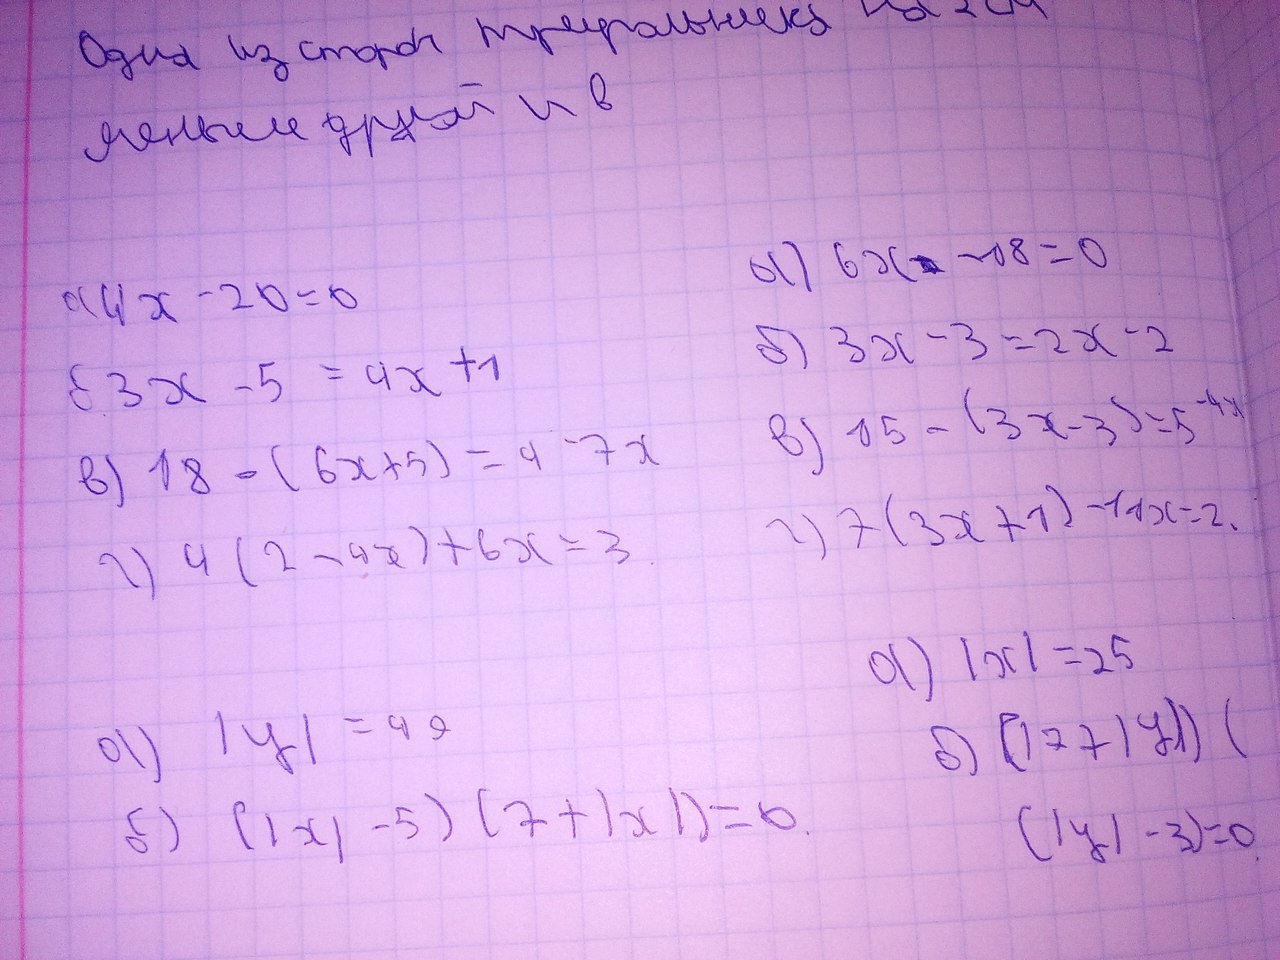 Одна из сторон треугольника на 2 см
меньше другой и в
а) 4x - 20 = 0
б. 3x - 5 = 4x + 1
в) 18 - (6x + 5) = 4 - 7x
г) 4 (2 - 4x) + 6x = 3.
а) |y| =
б) (|x| - 5) (7 + |x|) = 0.
а) 6x - 18 = 0
б) 3x - 3 = 2x - 2
в) 15 - (3x - 3) = 5 - 4x
г) 7 (3x + 1) - 11x = 2.
а) |x| = 25
б) (17 + |y|) (
(|y| - 3) = 0.